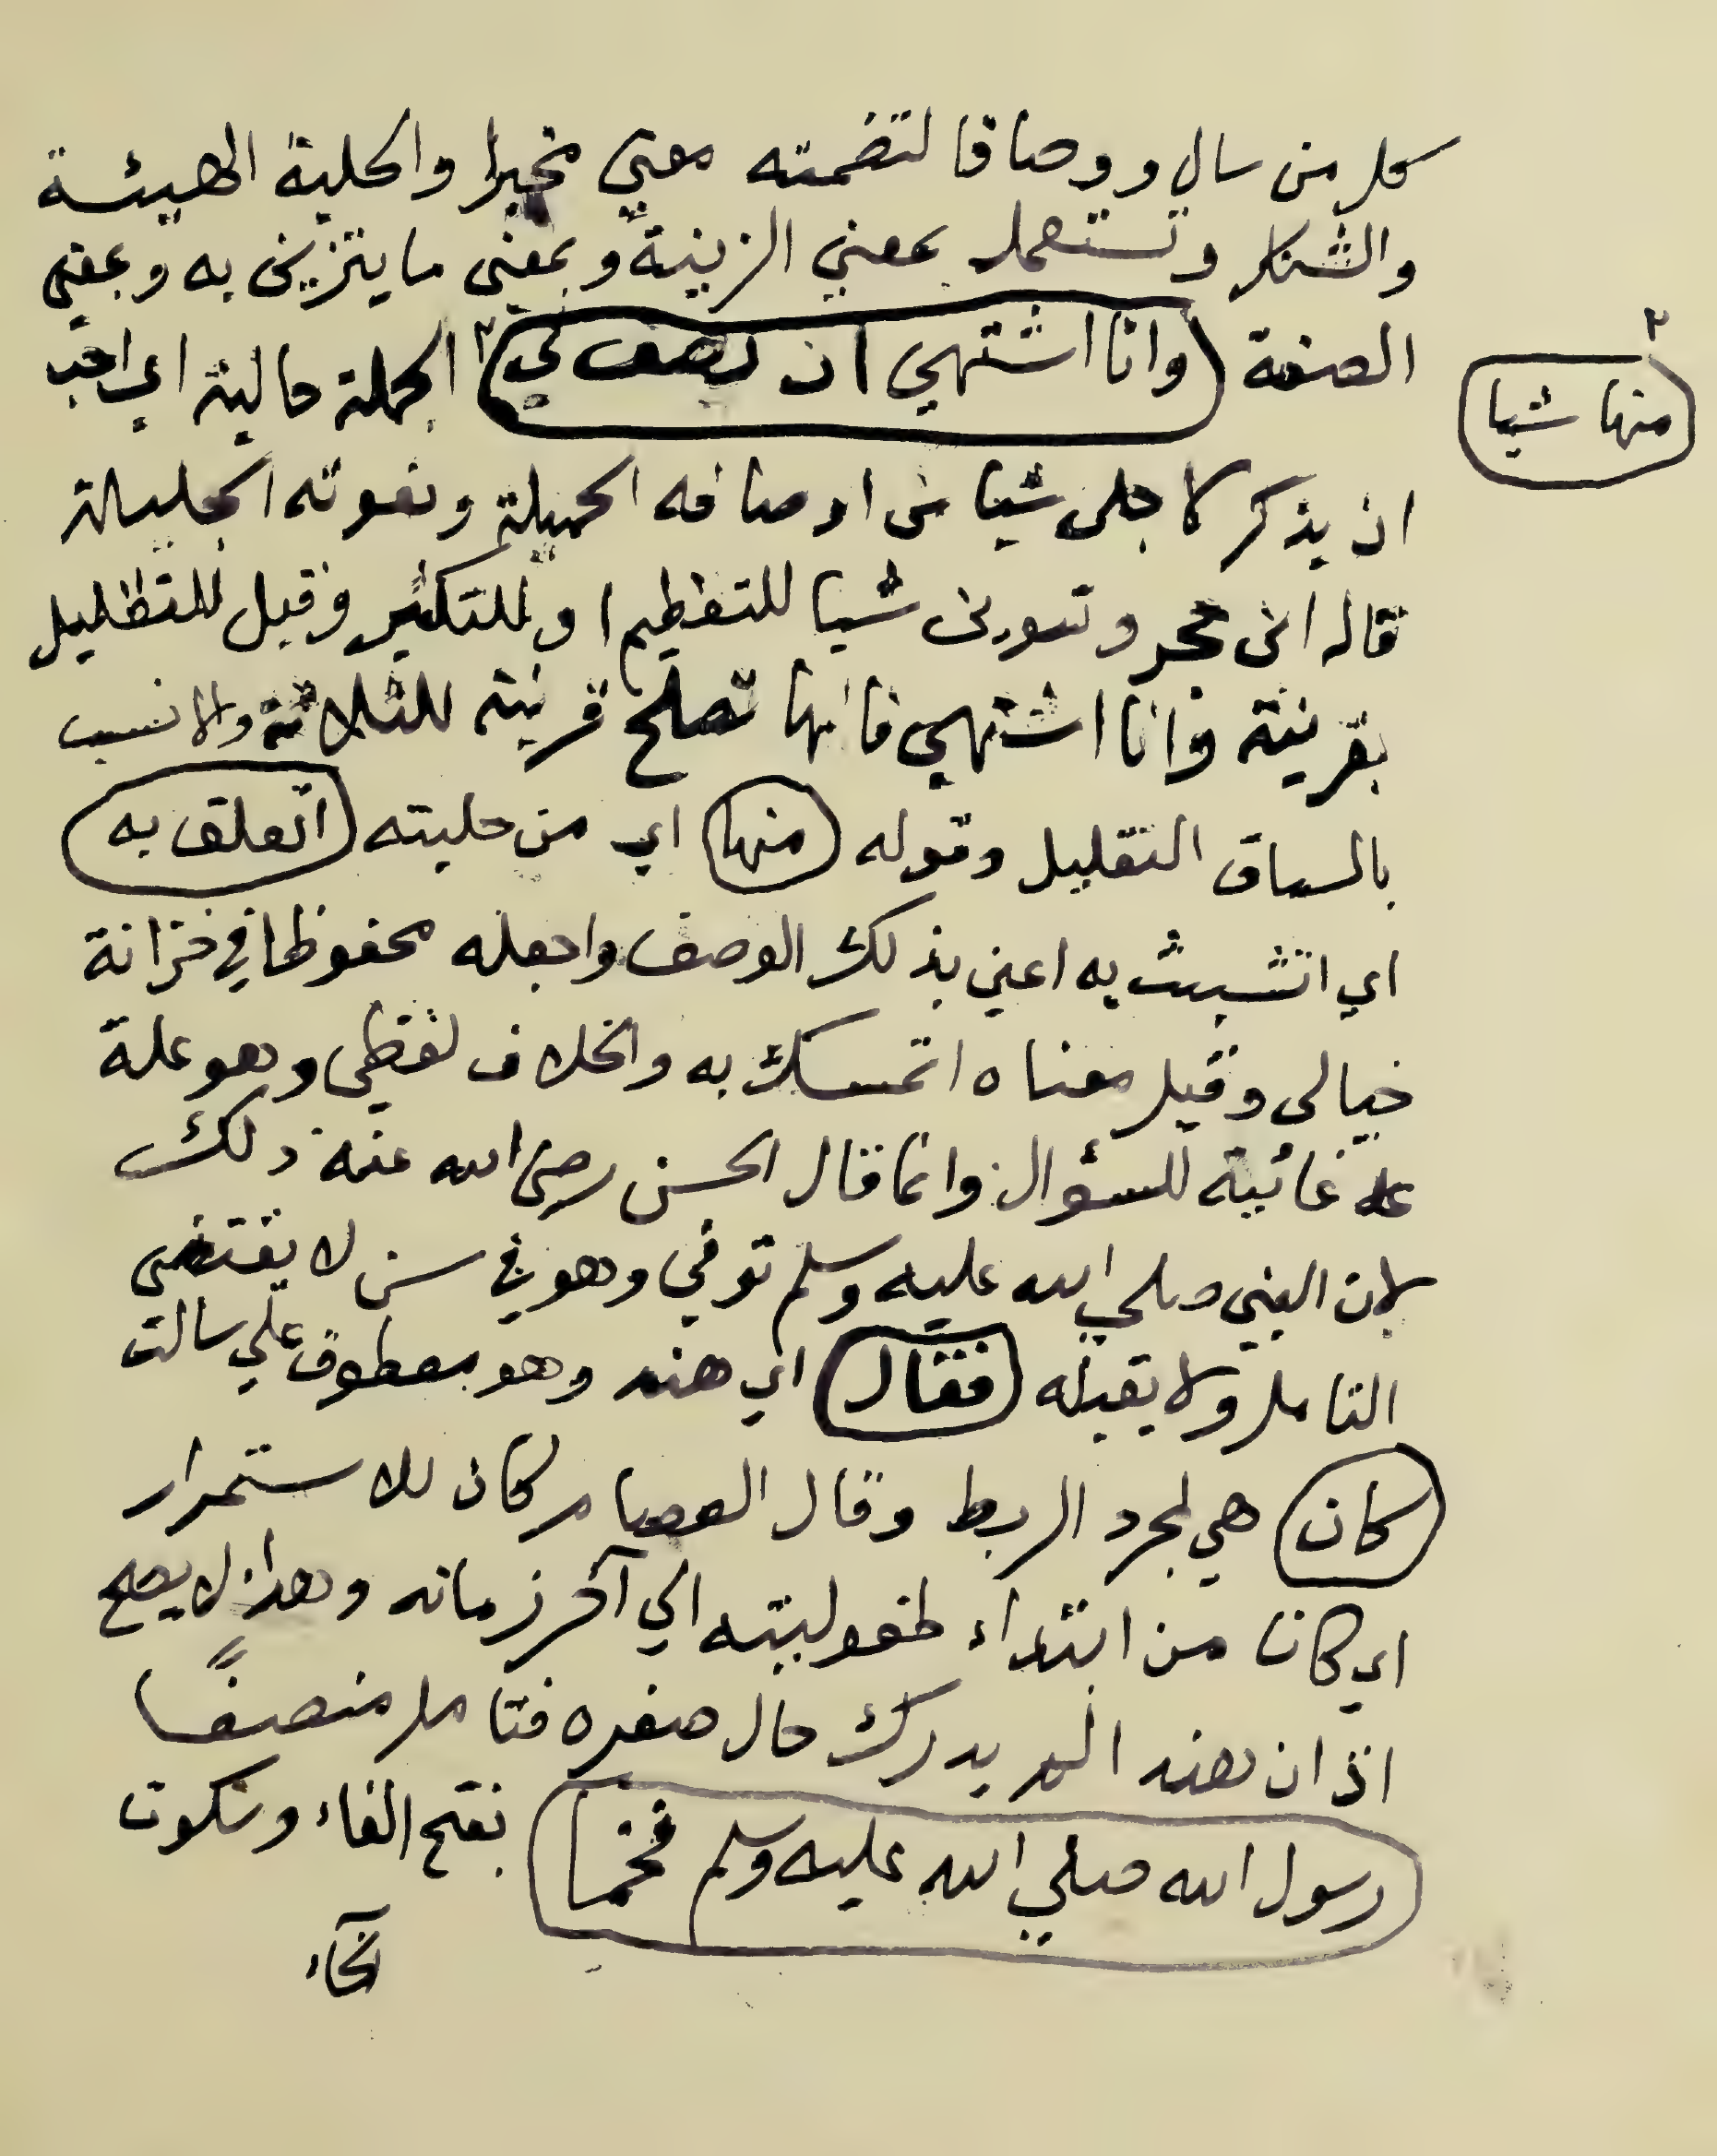 كل من سال ووصافا لتضمنه معني مخبرا والحلية الهيئة
والشكل وتستعمل بمعني الزينة وبمعني ما يتزين به وبمعني
الصفة وانا اشتهي ان يصف لي ٢ الجملة حالية اي احب
٢ منها شيا
ان يذكر لاجلي شيا من اوصافه الجميلة ونعوته الجليلة
قاله ابن حجر وتنوين شيا للتعظيم او للتكثير وقيل للتقليل
بقرينة وانا اشتهي فانها تصلح قرينة للثلاثة والانسب
بالسياق التقليل وقوله منها اي من حليته اتعلق به
اي اتشبث به اعني بذلك الوصف واجعله محفوظا في خزانة
خيالي وقيل معناه اتمسك به والخلاف لفظي وهو علة
غائية للسؤال وانما قال الحسن رضي الله عنه ذلك
لان النبي صلي الله عليه وسلم توفي وهو في سن لا يقتضي
التامل ولا يقبله فقال اي هند وهو معطوف علي سالت
كان هي لمجرد الربط وقال العصام كان للاستمرار
اي كان من ابتداء طفوليته الي آخر زمانه وهذا لا يصح
اذ ان هندا لم يدرك حال صغره فتامل منصفًا
رسول الله صلي الله عليه وسلم فخما بفتح الفاء وسكون
الخاء